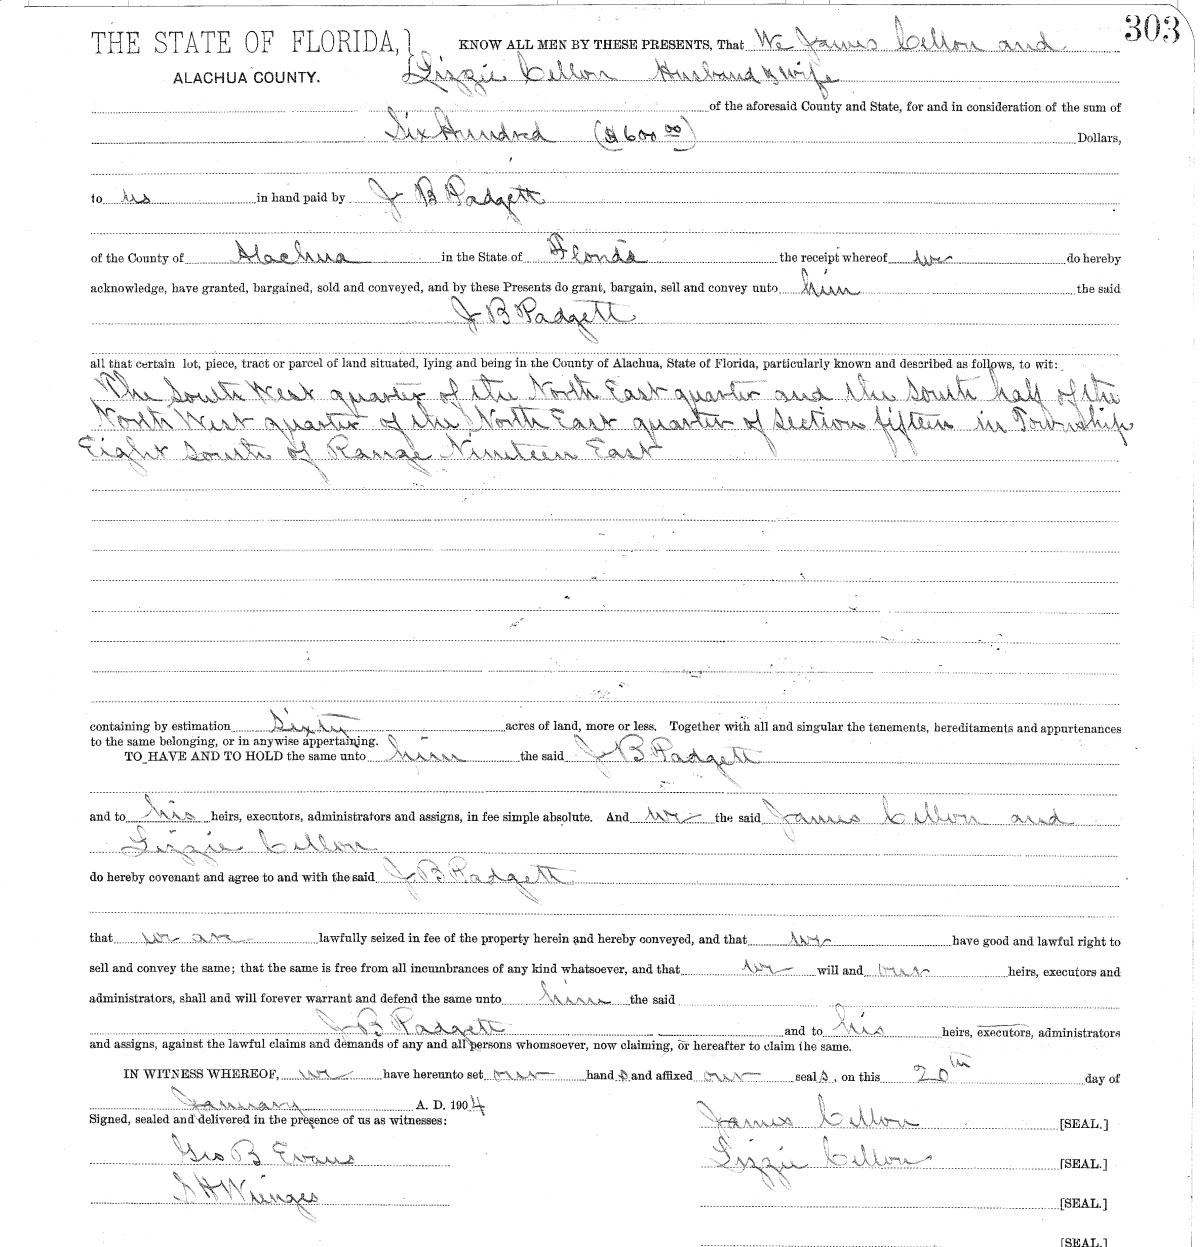 303
THE STATE OF FLORIDA,} KNOW ALL MEN BY THESE PRESENTS, That We James Cellon and
ALACHUA COUNTY. Lizzie Cellon Husband & wife
of the aforesaid County and State, for and in consideration of the sum of
Six Hundred ($600 00) Dollars,
to us in hand paid by J B Padgett
of the County of Alachua in the State of Florida the receipt whereof we do hereby
acknowledge, have granted, bargained, sold and conveyed, and by these Presents do grant, bargain, sell and convey unto him the said
J B Padgett
all that certain lot, piece, tract or parcel of land situated, lying and being in the County of Alachua, State of Florida, particularly known and described as follows, to wit:
The South West quarter of the North East quarter and the South half of the
North West quarter of the North East quarter of Section fifteen in Township
Eight South of Range Nineteen East
containing by estimation Sixty acres of land, more or less. Together with all and singular the tenements, hereditaments and appurtenances
to the same belonging, or in anywise appertaining.
TO HAVE AND TO HOLD the same unto him the said J B Padgett
and to his heirs, executors, administrators and assigns, in fee simple absolute. And we the said James Cellon and
Lizzie Cellon
do hereby covenant and agree to and with the said J B Padgett
that we are lawfully seized in fee of the property herein and hereby conveyed, and that we have good and lawful right to
sell and convey the same; that the same is free from all incumbrances of any kind whatsoever, and that we will and our heirs, executors and
administrators, shall and will forever warrant and defend the same unto him the said
J B Padgett and to his heirs, executors, administrators
and assigns, against the lawful claims and demands of any and all persons whomsoever, now claiming, or hereafter to claim the same.
IN WITNESS WHEREOF, we have hereunto set our hand s and affixed our seal s, on this 20th day of
January A. D. 1904
Signed, sealed and delivered in the presence of us as witnesses: James Cellon [SEAL.]
Geo B Evans Lizzie Cellon [SEAL.]
S H Wienges [SEAL.]
[SEAL.]